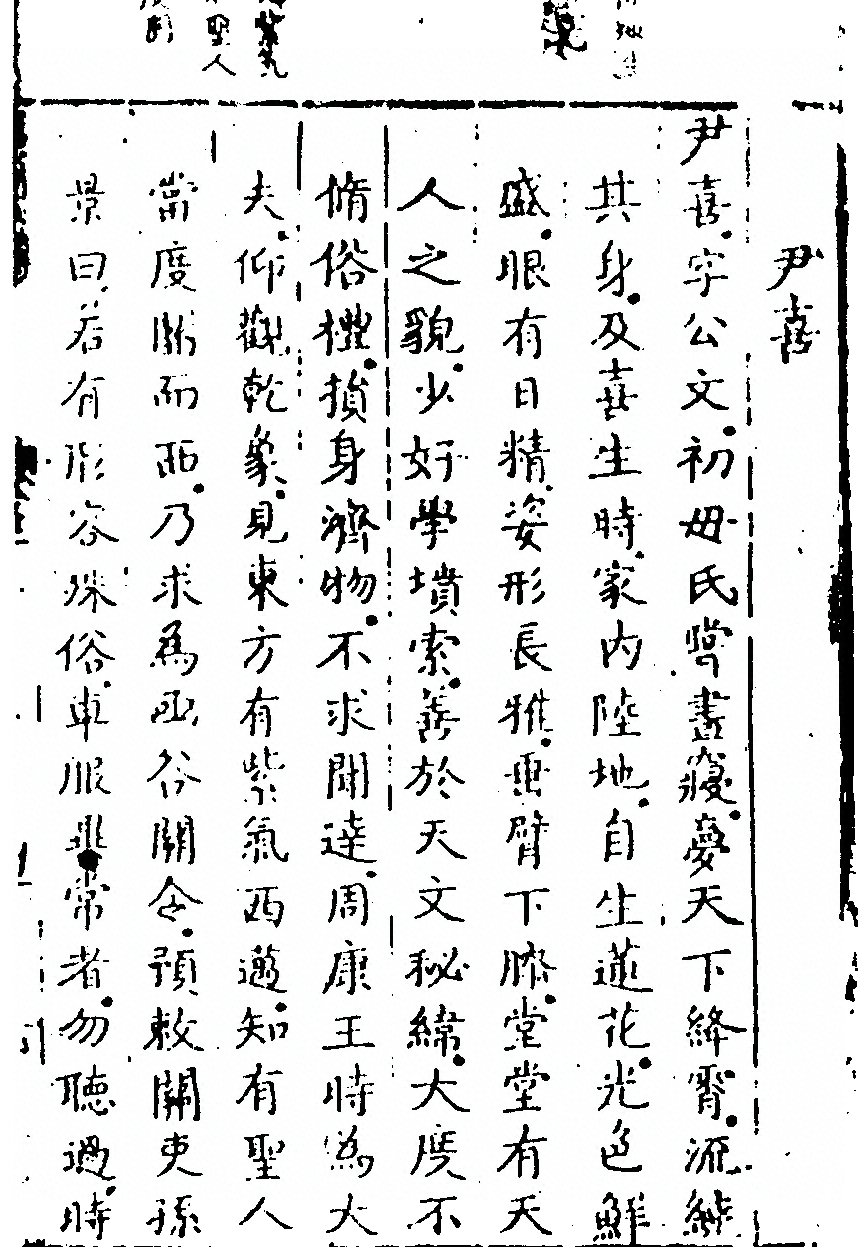 尹喜
尹喜字公文初母氏嘗晝寢夢天下絳霄流繞
其身及喜生時家內陸地自生蓮花光色鮮
盛眼有日精姿形長雅垂臂下膝堂堂有天
人之貌少好學墳索善於天文秘緯大度不
脩俗禮損身濟物不求聞達周康王時為大
夫仰觀乾象見東方有紫氣西邁知有聖人
當度關而西乃求為函谷關令預敕關吏孫
景曰若有形容殊俗車服非常者勿聽過時